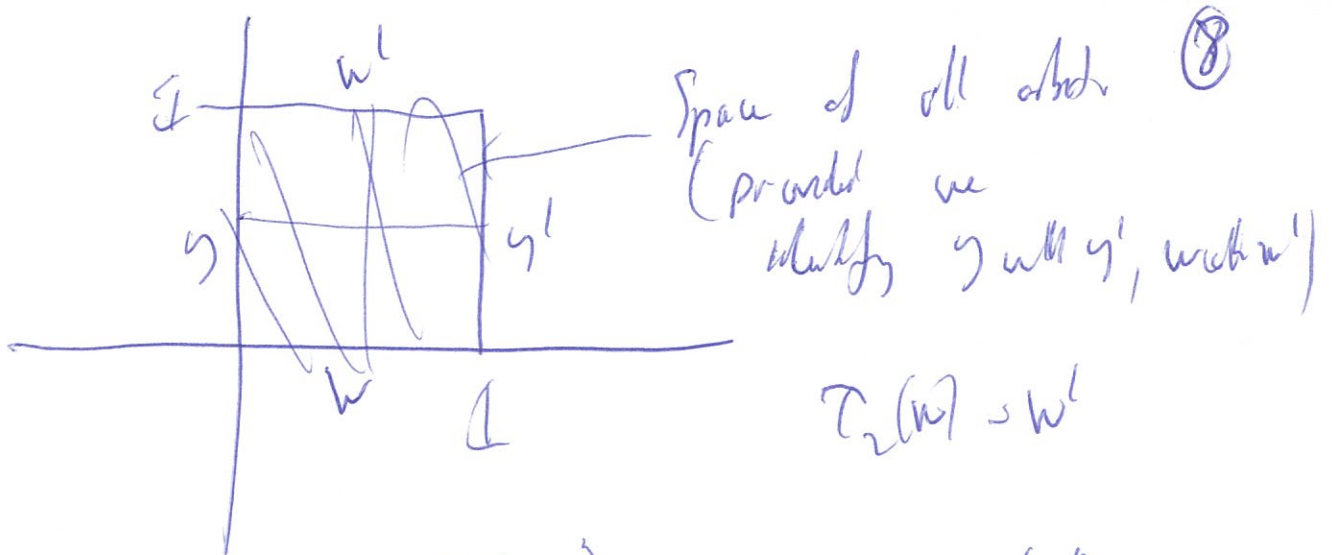 w'
1
Space of all orbits ⑧
(provided we
identify y with y', w with w')
y
y'
w
1
T₂(w) = w'